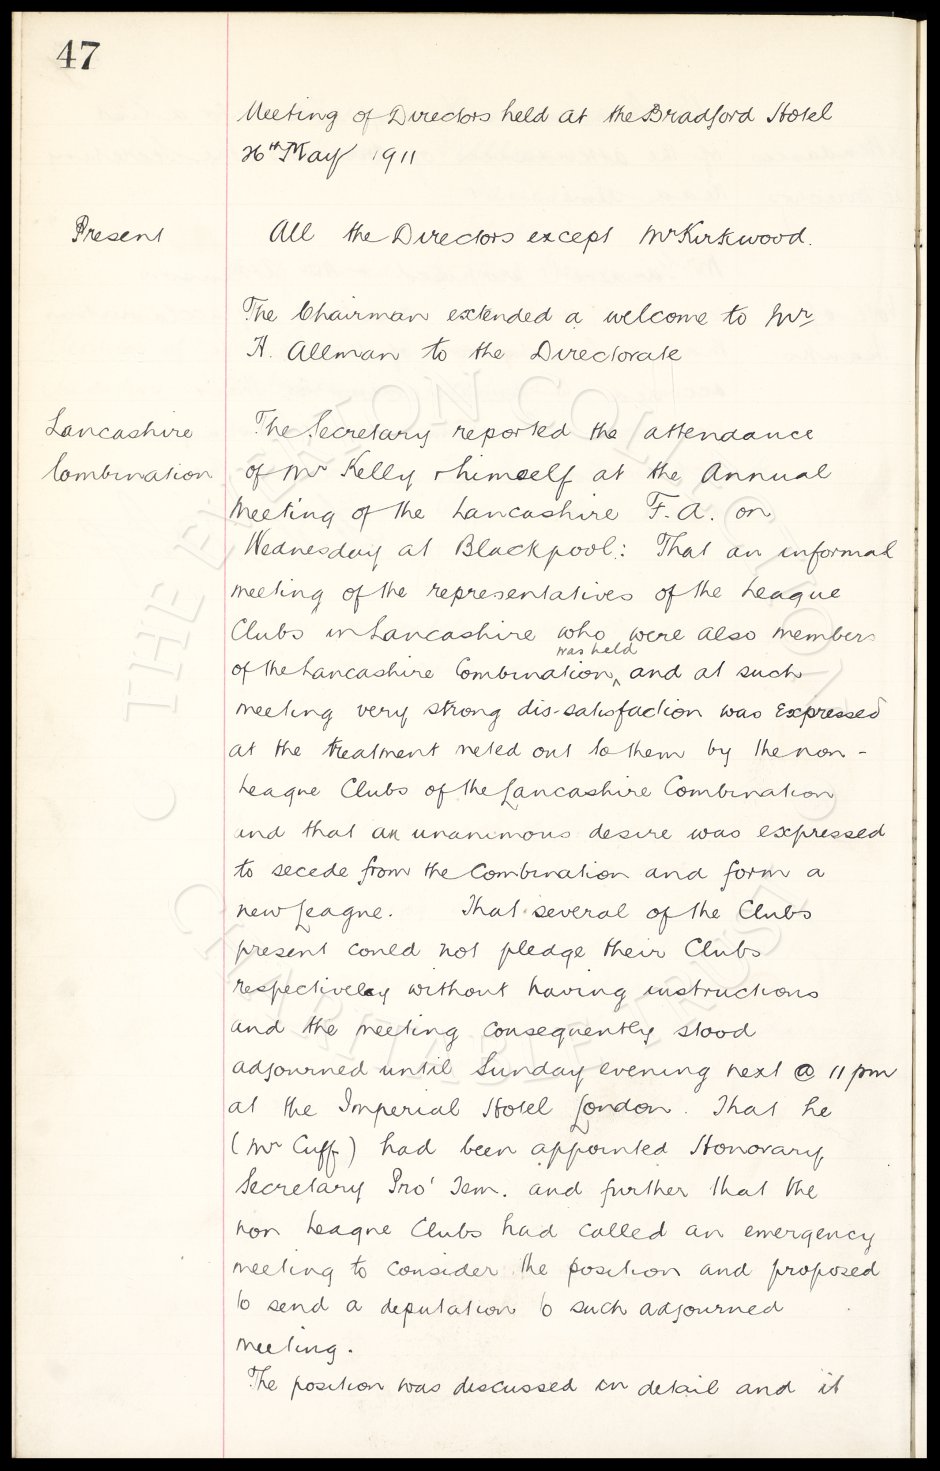 47
Meeting of Directors held at the Bradford Hotel
26th May 1911
Present
All the Directors except Mr Kirkwood.
The Chairman extended a welcome to Mr
H. Allman to the Directorate
Lancashire
Combination
The Secretary reported the attendance
of Mr Kelly & himself at the Annual
Meeting of the Lancashire F.A. on
Wednesday at Blackpool: That an informal
meeting of the representatives of the League
Clubs in Lancashire who were also members
was held
of the Lancashire Combination ^ and at such
meeting very strong dis-satisfaction was expressed
at the treatment meted out to them by the non-
League Clubs of the Lancashire Combination
and that an unanimous desire was expressed
to secede from the Combination and form a
new League. That several of the Clubs
present could not pledge their Clubs
respectively without having instructions
and the meeting consequently stood
adjourned until Sunday evening next @ 11 pm
at the Imperial Hotel London. That he
(Mr Cuff) had been appointed Honorary
Secretary Pro' Tem. and further that the
non League Clubs had called an emergency
meeting to consider the position and proposed
to send a deputation to such adjourned
meeting.
The position was discussed in detail and it
THE EVERTON COLLECTION